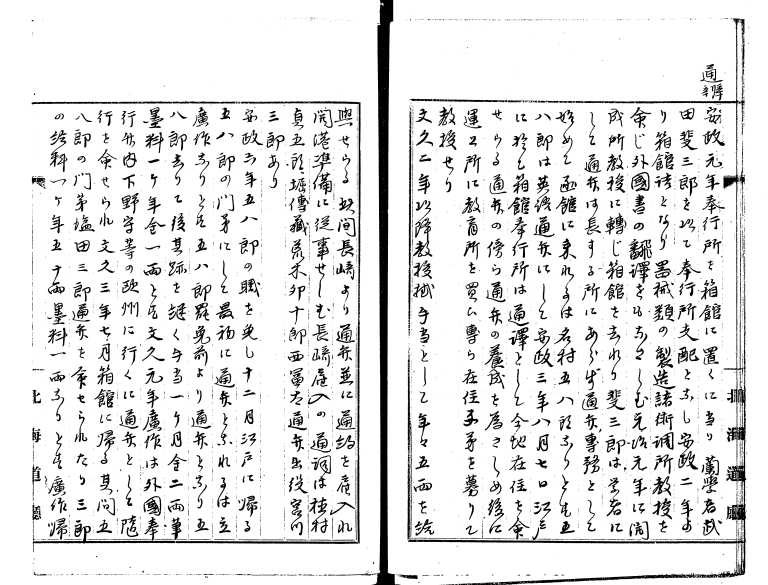 通譯
安政元年奉行所を箱館に置くに当り蘭学者武
田斐三郎を以て奉行所支配となし安政二年よ
り箱館詰となり器械類の製造諸術調所教授を
命じ外國書の翻譯をもなさしむ元治元年に開
成所教授に轉じ箱館を去れり斐三郎は学者に
して通弁は長ずる所にあらず通弁専務として
始めて函館に来れるは名村五八郎なりとす五
八郎は英語通弁にして安政三年八月七日江戸
に於て箱館奉行所は通譯として全地在住を命
せらる通弁の傍ら通弁の養成を為さしめ後に
運上所に教育所を置い専ら在住子弟を募りて
教授せり
文久二年以降教授掛手当として年々五両を給
與せらる此間長崎より通弁並に通詞を雇入れ
開港準備に従事せしむ長崎雇入の通詞は植村
直五郎堀傳蔵荒木卯十郎西冨太通弁出役
三郎あり
安政六年五八郎の職を免し十二月江戸に帰る
五八郎の門弟にして最初に通弁となれるは立
廣作なりとす五八郎罷免前より通弁となり五
八郎去りて後其跡を継く手当一ヶ月金二両筆
墨料一ヶ年金一両とす文久元年廣作は外國奉
行竹内下野守等の欧州に行くに通弁として随
行を命せられ文久三年七月箱館に帰る其间五
八郎の門弟塩田三郎通弁を命せられたり三郎
の給料一ヶ年五十両墨料一両なりとす廣作帰
北海道廳
北海道廳